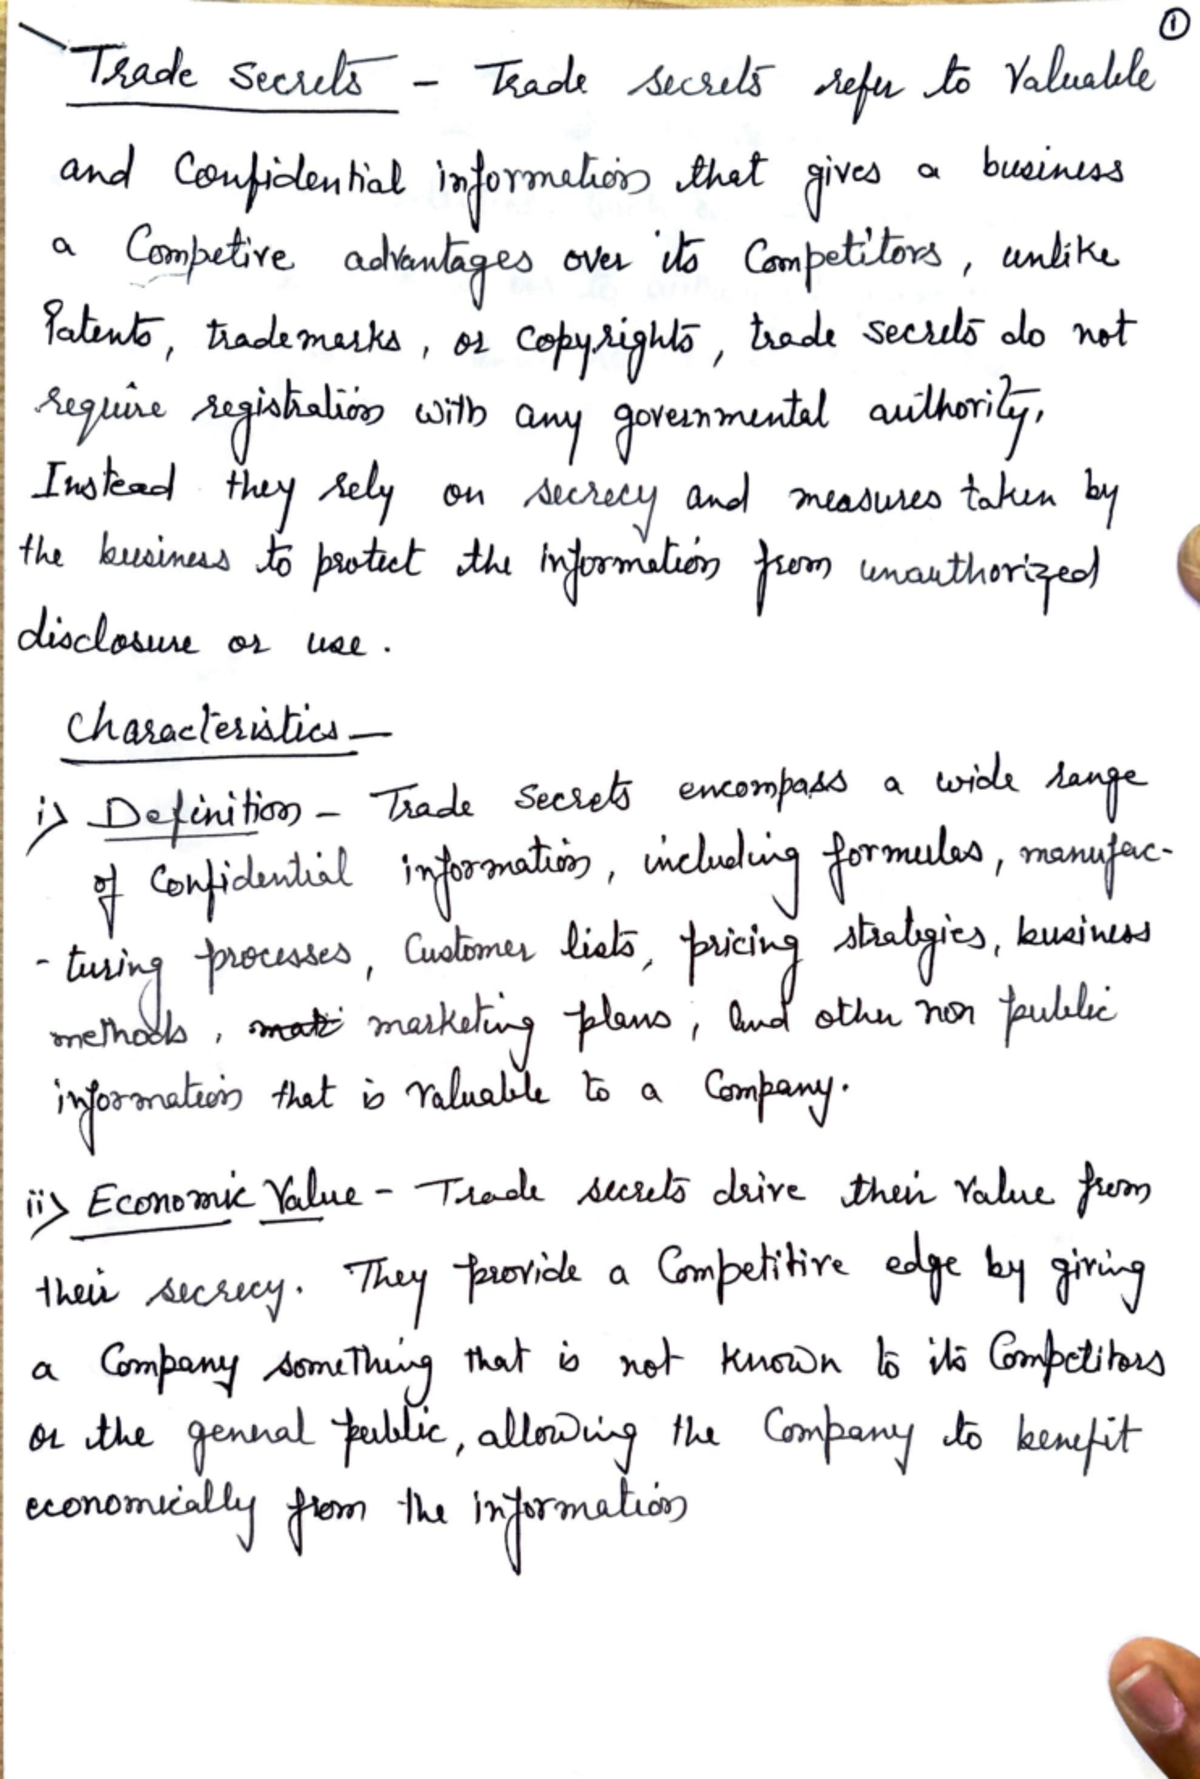 ①
Trade Secrets - Trade secrets refer to Valuable
and Confidential information that gives a business
a Competive advantages over its Competitors, unlike
Patents, trademarks, or copyrights, trade secrets do not
require registration with any governmental authority,
Instead they rely on secrecy and measures taken by
the business to protect the information from unauthorized
disclosure or use.
Characteristics —
i) Definition - Trade Secrets encompass a wide range
of Confidential information, including formulas, manufac-
- turing processes, Customer lists, pricing strategies, business
methods, marketing plans, and other non public
information that is valuable to a Company.
ii) Economic Value - Trade secrets drive their value from
their secrecy. They provide a Competitive edge by giving
a Company something that is not known to its Competitors
or the general public, allowing the Company to benefit
economically from the information